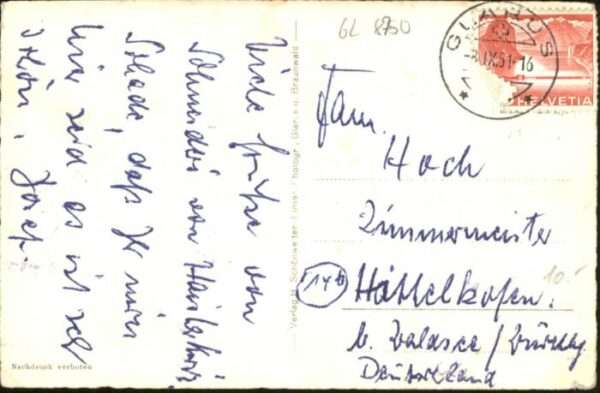 GL 8750
GLARUS
-8.IX.51-16
HELVETIA
Viele Grüße von
Schneiders von
Schade, daß Ihr nicht
hier seid es ist sehr
schön. Josef.
Fam.
Hoch
Zimmermeister
14b
b. Waldsee / Württbg
Deutschland
10.-
Verlag H. Schönwetter
Glarus u. Braunwald
Nachdruck verboten